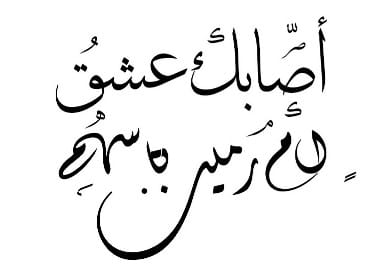 أصّابك عشقُ
أم رُميت بأسهُمٍ